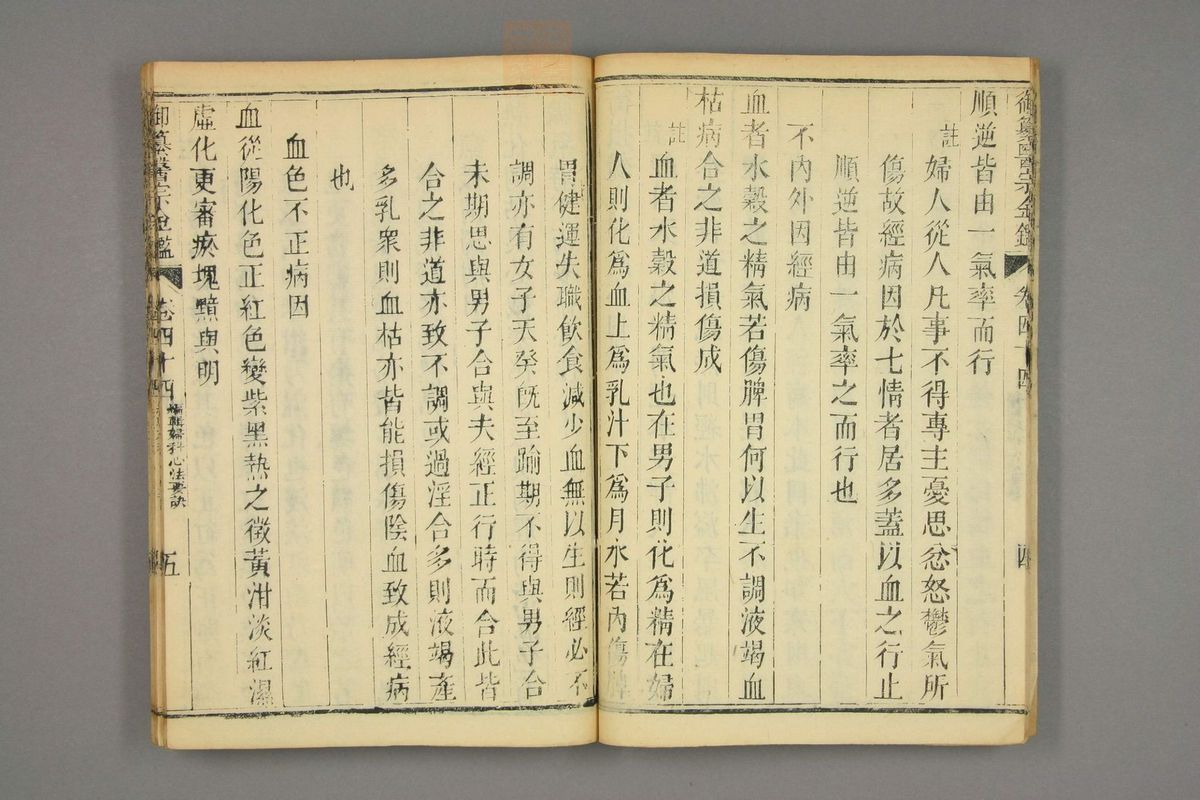 御纂醫宗金鑑 卷四十四 四
順逆皆由一氣率而行
註 婦人從人凡事不得專主憂思忿怒鬱氣所
傷故經病因於七情者居多蓋以血之行止
順逆皆由一氣率之而行也
不內外因經病
血者水穀之精氣若傷脾胃何以生不調液竭血
枯病合之非道損傷成
註 血者水穀之精氣也在男子則化為精在婦
人則化為血上為乳汁下為月水若內傷脾
胃健運失職飲食減少血無以生則經必不
調亦有女子天癸既至踰期不得與男子合
未期思與男子合與夫經正行時而合此皆
合之非道亦致不調或過淫合多則液竭產
多乳衆則血枯亦皆能損傷陰血致成經病
也
血色不正病因
血從陽化色正紅色變紫黑熱之徵黃泔淡紅濕
虛化更審瘀塊黯與明
御纂醫宗金鑑 卷四十四 編輯婦科心法要訣 五